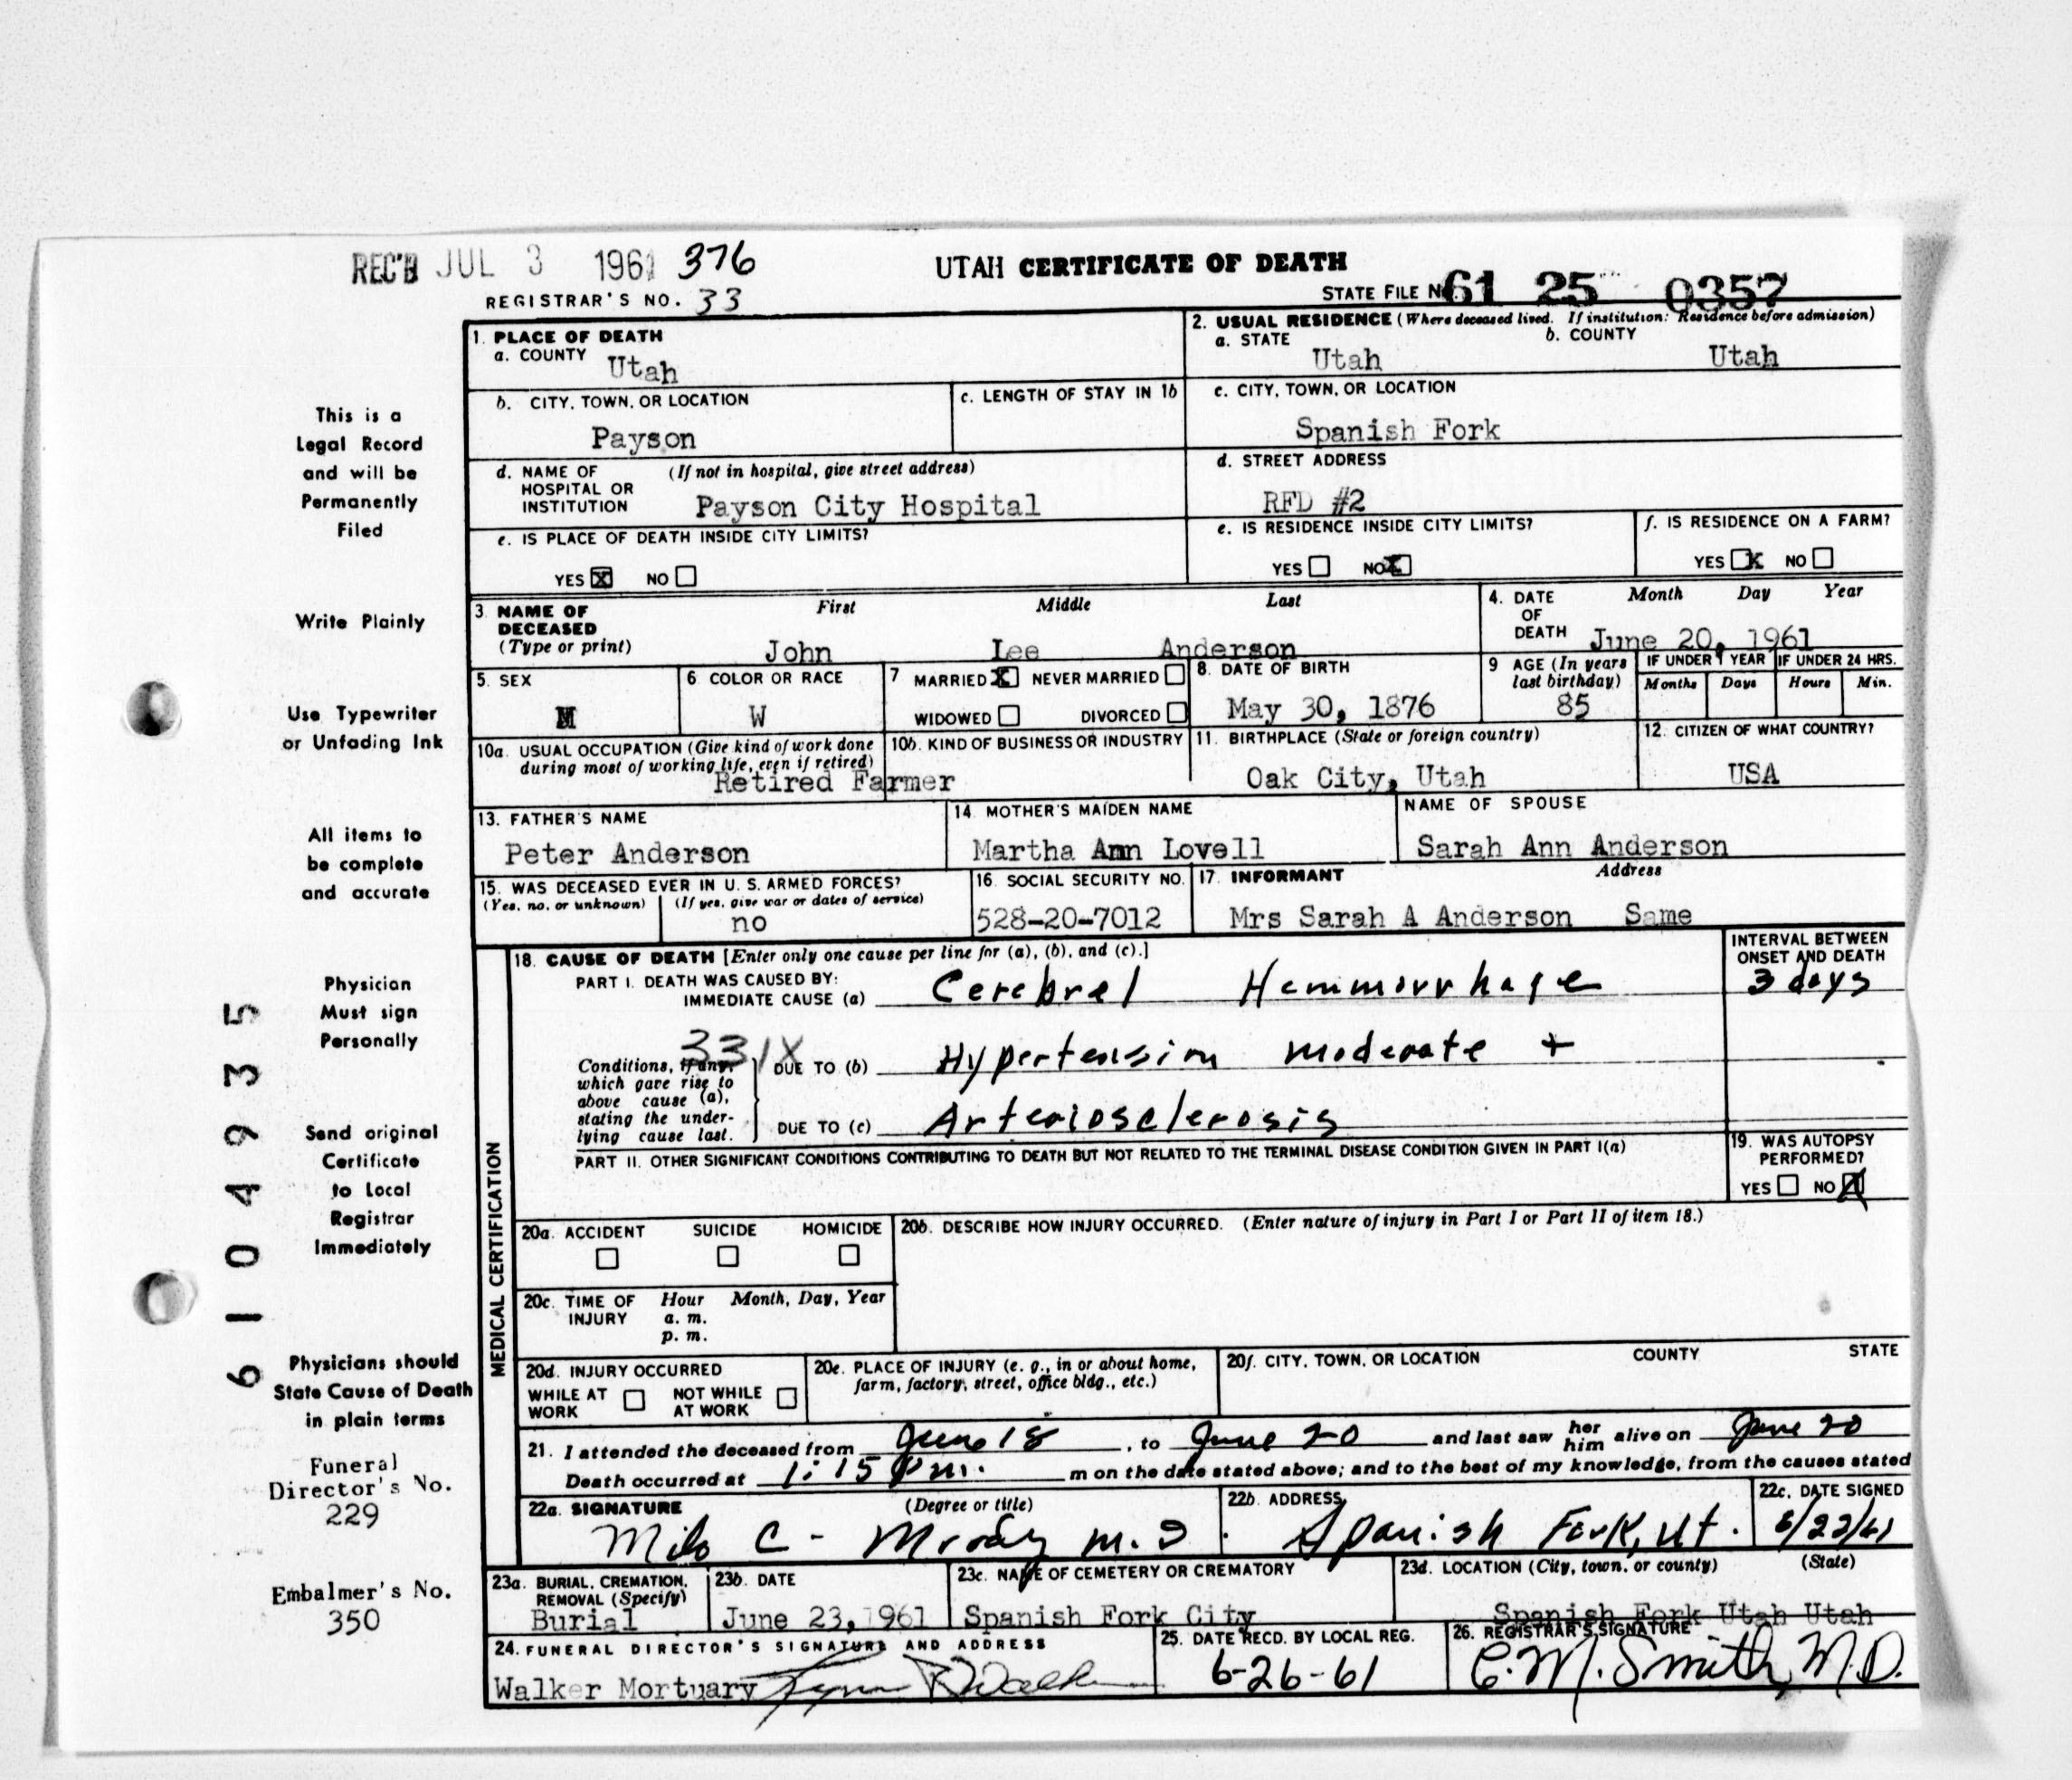 REC'D JUL 3 1961 376
UTAH CERTIFICATE OF DEATH
REGISTRAR'S NO. 33
STATE FILE NO. 61 25 0357
1. PLACE OF DEATH
a. COUNTY Utah
2. USUAL RESIDENCE (Where deceased lived. If institution: Residence before admission)
a. STATE Utah b. COUNTY Utah
b. CITY, TOWN, OR LOCATION Payson
c. LENGTH OF STAY IN 1b
c. CITY, TOWN, OR LOCATION Spanish Fork
d. NAME OF HOSPITAL OR INSTITUTION (If not in hospital, give street address) Payson City Hospital
d. STREET ADDRESS RFD #2
e. IS PLACE OF DEATH INSIDE CITY LIMITS?
YES X NO
e. IS RESIDENCE INSIDE CITY LIMITS?
YES NO X
f. IS RESIDENCE ON A FARM?
YES X NO
3. NAME OF DECEASED (Type or print) First Middle Last
John Lee Anderson
4. DATE OF DEATH Month Day Year
June 20, 1961
5. SEX M
6 COLOR OR RACE W
7 MARRIED X NEVER MARRIED
WIDOWED DIVORCED
8. DATE OF BIRTH May 30, 1876
9 AGE (In years last birthday) 85
IF UNDER 1 YEAR Months Days
IF UNDER 24 HRS. Hours Min.
10a. USUAL OCCUPATION (Give kind of work done during most of working life, even if retired)
Retired Farmer
10b. KIND OF BUSINESS OR INDUSTRY
11. BIRTHPLACE (State or foreign country)
Oak City, Utah
12. CITIZEN OF WHAT COUNTRY?
USA
13. FATHER'S NAME
Peter Anderson
14. MOTHER'S MAIDEN NAME
Martha Ann Lovell
NAME OF SPOUSE
Sarah Ann Anderson
15. WAS DECEASED EVER IN U. S. ARMED FORCES?
(Yes, no, or unknown) (If yes, give war or dates of service)
no
16. SOCIAL SECURITY NO.
528-20-7012
17. INFORMANT Address
Mrs Sarah A Anderson Same
MEDICAL CERTIFICATION
18. CAUSE OF DEATH [Enter only one cause per line for (a), (b), and (c).]
INTERVAL BETWEEN ONSET AND DEATH
PART I. DEATH WAS CAUSED BY:
IMMEDIATE CAUSE (a) Cerebral Hemmorrhage 3 days
331X
Conditions, if any, which gave rise to above cause (a), stating the underlying cause last.
DUE TO (b) Hypertension moderate +
DUE TO (c) Arteriosclerosis
PART II. OTHER SIGNIFICANT CONDITIONS CONTRIBUTING TO DEATH BUT NOT RELATED TO THE TERMINAL DISEASE CONDITION GIVEN IN PART I(a)
19. WAS AUTOPSY PERFORMED?
YES NO X
20a. ACCIDENT SUICIDE HOMICIDE
20b. DESCRIBE HOW INJURY OCCURRED. (Enter nature of injury in Part I or Part II of item 18.)
20c. TIME OF INJURY Hour Month, Day, Year
a. m.
p. m.
20d. INJURY OCCURRED
WHILE AT WORK NOT WHILE AT WORK
20e. PLACE OF INJURY (e. g., in or about home, farm, factory, street, office bldg., etc.)
20f. CITY, TOWN, OR LOCATION COUNTY STATE
21. I attended the deceased from June 18, to June 20 and last saw her him alive on June 20
Death occurred at 1:15 pm. m on the date stated above; and to the best of my knowledge, from the causes stated
22a. SIGNATURE (Degree or title)
Milo C - Moody M.D.
22b. ADDRESS
Spanish Fork, Ut.
22c. DATE SIGNED
6/22/61
23a. BURIAL, CREMATION, REMOVAL (Specify)
Burial
23b. DATE
June 23, 1961
23c. NAME OF CEMETERY OR CREMATORY
Spanish Fork City
23d. LOCATION (City, town, or county) (State)
Spanish Fork Utah Utah
24. FUNERAL DIRECTOR'S SIGNATURE AND ADDRESS
Walker Mortuary
25. DATE RECD. BY LOCAL REG.
6-26-61
26. REGISTRAR'S SIGNATURE
C. M. Smith, M.D.
This is a
Legal Record
and will be
Permanently
Filed
Write Plainly
Use Typewriter
or Unfading Ink
All items to
be complete
and accurate
Physician
Must sign
Personally
Send original
Certificate
to Local
Registrar
Immediately
Physicians should
State Cause of Death
in plain terms
Funeral
Director's No.
229
Embalmer's No.
350
6104935